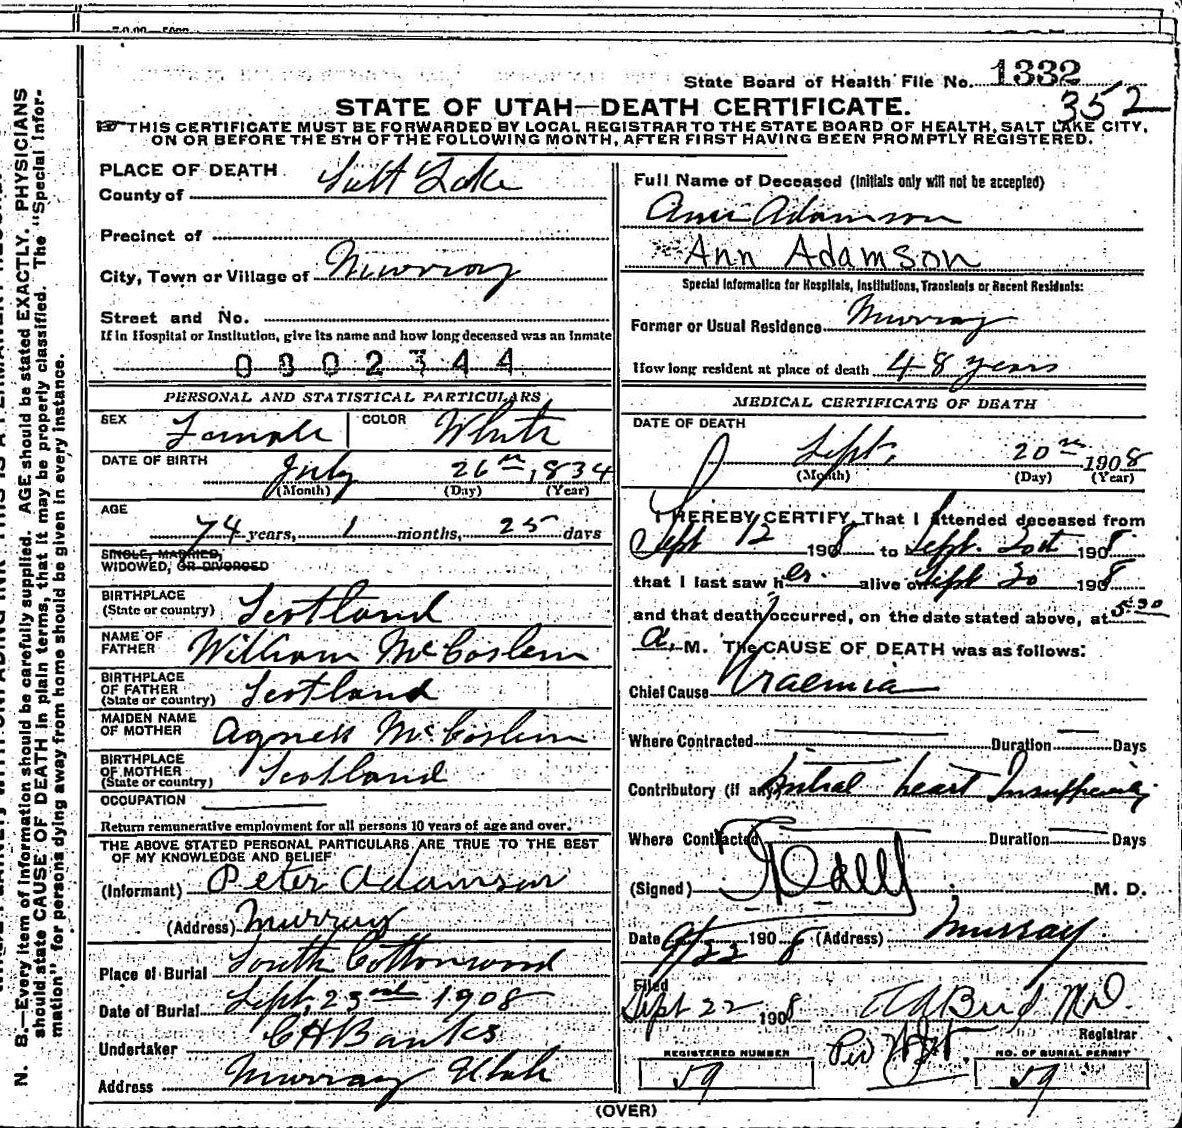 State Board of Health File No. 1332
352
STATE OF UTAH—DEATH CERTIFICATE.
THIS CERTIFICATE MUST BE FORWARDED BY LOCAL REGISTRAR TO THE STATE BOARD OF HEALTH, SALT LAKE CITY,
ON OR BEFORE THE 5TH OF THE FOLLOWING MONTH, AFTER FIRST HAVING BEEN PROMPTLY REGISTERED.
PLACE OF DEATH
County of Salt Lake
Precinct of
City, Town or Village of Murray
Street and No.
If in Hospital or Institution, give its name and how long deceased was an inmate
0802344
PERSONAL AND STATISTICAL PARTICULARS
SEX Female COLOR White
DATE OF BIRTH July 26th, 1834
(Month) (Day) (Year)
AGE
74 years, 1 months, 25 days
SINGLE, MARRIED,
WIDOWED, OR DIVORCED
BIRTHPLACE
(State or country) Scotland
NAME OF
FATHER William McCoslem
BIRTHPLACE
OF FATHER
(State or country) Scotland
MAIDEN NAME
OF MOTHER Agness McCoslem
BIRTHPLACE
OF MOTHER
(State or country) Scotland
OCCUPATION
Return remunerative employment for all persons 10 years of age and over.
THE ABOVE STATED PERSONAL PARTICULARS ARE TRUE TO THE BEST
OF MY KNOWLEDGE AND BELIEF
(Informant) Peter Adamson
(Address) Murray
Place of Burial South Cottonwood
Date of Burial Sept, 23rd 1908
Undertaker C H Banks
Address Murray Utah
Full Name of Deceased (Initials only will not be accepted)
Ann Adamson
Ann Adamson
Special Information for Hospitals, Institutions, Transients or Recent Residents:
Former or Usual Residence Murray
How long resident at place of death 48 years
MEDICAL CERTIFICATE OF DEATH
DATE OF DEATH
Sept, 20th 1908
(Month) (Day) (Year)
I HEREBY CERTIFY, That I attended deceased from
Sept 12 1908 to Sept. 20th 1908
that I last saw her alive on Sept 20 1908
and that death occurred, on the date stated above, at 5:30
a. M. The CAUSE OF DEATH was as follows:
Chief Cause Uraemia
Where Contracted Duration Days
Contributory (if any) heart Insufficiency
Where Contracted Duration Days
(Signed) M. D.
Date 9/22 1908 (Address) Murray
Filed
Sept 22 1908
Registrar
REGISTERED NUMBER
59
NO. OF BURIAL PERMIT
59
(OVER)
N. B.—Every item of information should be carefully supplied. AGE should be stated EXACTLY. PHYSICIANS
should state CAUSE OF DEATH in plain terms, that it may be properly classified. The "Special Infor-
mation" for persons dying away from home should be given in every instance.